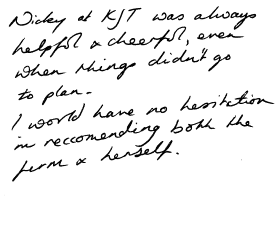 Nicky at KJT was always
helpful & cheerful, even
when things didn't go
to plan.
I would have no hesitation
in reccomending both the
firm & herself.